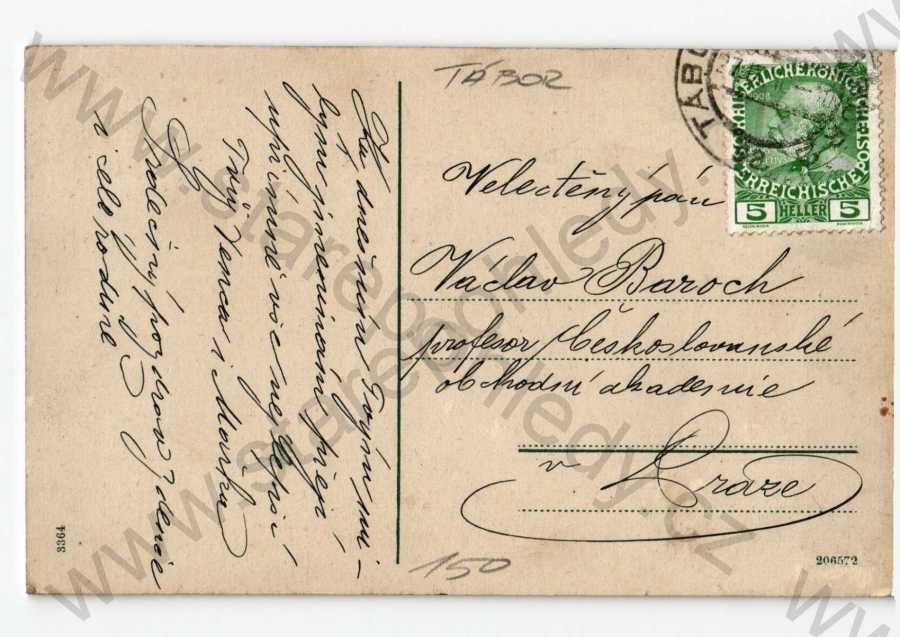 TÁBOR
TÁBO
KAISERLICHE KÖNIGLICHE
ÖSTERREICHISCHE POST
1908
5 HELLER 5
Velectěný pán
Václav Baroch
profesor Českoslovanské
obchodní akademie
v Praze
Ku dnešním Tvým mi-
lým jmeninám přeji
upřímně vše nejlepší
Tvůj Jenca i Mařka
Srdečný pozdrav Zdence
i celé rodině
3364
150
206572
www.starepohledy.cz